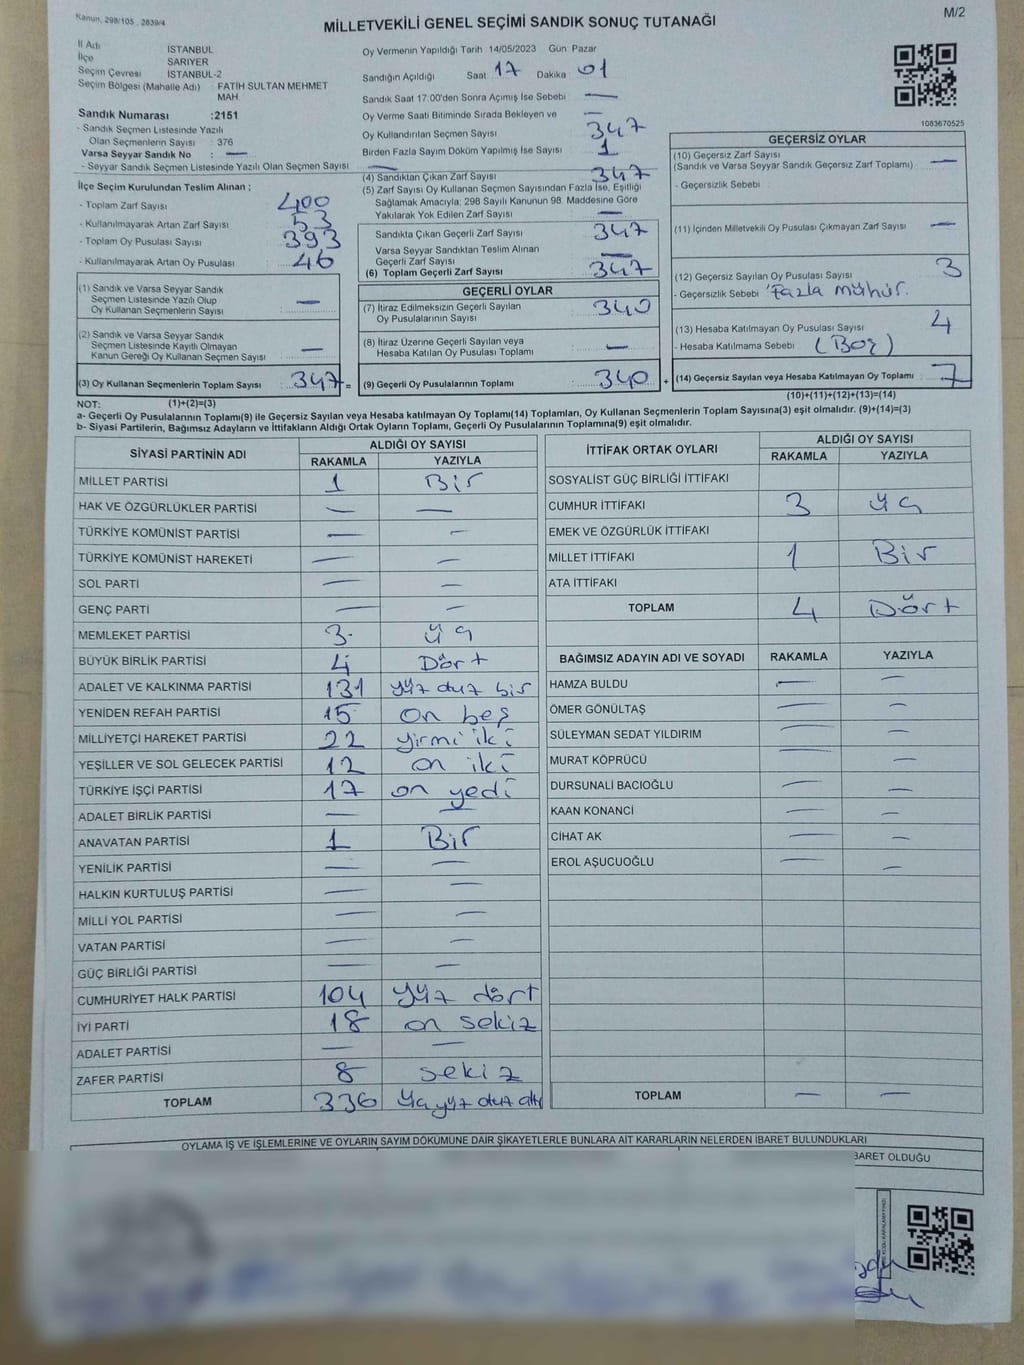 Kanun, 298/105 , 2839/4
M/2
MİLLETVEKİLİ GENEL SEÇİMİ SANDIK SONUÇ TUTANAĞI
İl Adı İSTANBUL
İlçe SARIYER
Seçim Çevresi İSTANBUL-2
Seçim Bölgesi (Mahalle Adı) : FATİH SULTAN MEHMET
MAH.
Sandık Numarası :2151
- Sandık Seçmen Listesinde Yazılı
Olan Seçmenlerin Sayısı : 376
Varsa Seyyar Sandık No : —
- Seyyar Sandık Seçmen Listesinde Yazılı Olan Seçmen Sayısı —
İlçe Seçim Kurulundan Teslim Alınan ;
- Toplam Zarf Sayısı 400
- Kullanılmayarak Artan Zarf Sayısı 53
- Toplam Oy Pusulası Sayısı 393
- Kullanılmayarak Artan Oy Pusulası 46
(1) Sandık ve Varsa Seyyar Sandık
Seçmen Listesinde Yazılı Olup
Oy Kullanan Seçmenlerin Sayısı : —
(2) Sandık ve Varsa Seyyar Sandık
Seçmen Listesinde Kayıtlı Olmayan
Kanun Gereği Oy Kullanan Seçmen Sayısı : —
(3) Oy Kullanan Seçmenlerin Toplam Sayısı : 347 =
Oy Vermenin Yapıldığı Tarih 14/05/2023 Gün Pazar
Sandığın Açıldığı Saat 17 Dakika 01
Sandık Saat 17:00'den Sonra Açımış İse Sebebi —
Oy Verme Saati Bitiminde Sırada Bekleyen ve —
Oy Kullandırılan Seçmen Sayısı 347
Birden Fazla Sayım Döküm Yapılmış İse Sayısı 1
(4) Sandıktan Çıkan Zarf Sayısı 347
(5) Zarf Sayısı Oy Kullanan Seçmen Sayısından Fazla İse, Eşitliği
Sağlamak Amacıyla; 298 Sayılı Kanunun 98. Maddesine Göre
Yakılarak Yok Edilen Zarf Sayısı —
Sandıkta Çıkan Geçerli Zarf Sayısı 347
Varsa Seyyar Sandıktan Teslim Alınan
Geçerli Zarf Sayısı —
(6) Toplam Geçerli Zarf Sayısı 347
GEÇERLİ OYLAR
(7) İtiraz Edilmeksizin Geçerli Sayılan
Oy Pusulalarının Sayısı 340
(8) İtiraz Üzerine Geçerli Sayılan veya
Hesaba Katılan Oy Pusulası Toplamı —
(9) Geçerli Oy Pusulalarının Toplamı 340 +
1083670525
GEÇERSİZ OYLAR
(10) Geçersiz Zarf Sayısı
(Sandık ve Varsa Seyyar Sandık Geçersiz Zarf Toplamı) —
- Geçersizlik Sebebi
(11) İçinden Milletvekili Oy Pusulası Çıkmayan Zarf Sayısı —
(12) Geçersiz Sayılan Oy Pusulası Sayısı 3
- Geçersizlik Sebebi Fazla mühür.
(13) Hesaba Katılmayan Oy Pusulası Sayısı 4
- Hesaba Katılmama Sebebi (Boş)
(14) Geçersiz Sayılan veya Hesaba Katılmayan Oy Toplamı 7
(10)+(11)+(12)+(13)=(14)
NOT: (1)+(2)=(3)
a- Geçerli Oy Pusulalarının Toplamı(9) ile Geçersiz Sayılan veya Hesaba katılmayan Oy Toplamı(14) Toplamları, Oy Kullanan Seçmenlerin Toplam Sayısına(3) eşit olmalıdır. (9)+(14)=(3)
b- Siyasi Partilerin, Bağımsız Adayların ve İttifakların Aldığı Ortak Oyların Toplamı, Geçerli Oy Pusulalarının Toplamına(9) eşit olmalıdır.
SİYASİ PARTİNİN ADI ALDIĞI OY SAYISI
RAKAMLA YAZIYLA
MİLLET PARTİSİ 1 Bir
HAK VE ÖZGÜRLÜKLER PARTİSİ — —
TÜRKİYE KOMÜNİST PARTİSİ — —
TÜRKİYE KOMÜNİST HAREKETİ — —
SOL PARTİ — —
GENÇ PARTİ — —
MEMLEKET PARTİSİ 3 üç
BÜYÜK BİRLİK PARTİSİ 4 Dört
ADALET VE KALKINMA PARTİSİ 131 yüz otuz bir
YENİDEN REFAH PARTİSİ 15 on beş
MİLLİYETÇİ HAREKET PARTİSİ 22 yirmi iki
YEŞİLLER VE SOL GELECEK PARTİSİ 12 on iki
TÜRKİYE İŞÇİ PARTİSİ 17 on yedi
ADALET BİRLİK PARTİSİ — —
ANAVATAN PARTİSİ 1 Bir
YENİLİK PARTİSİ — —
HALKIN KURTULUŞ PARTİSİ — —
MİLLİ YOL PARTİSİ — —
VATAN PARTİSİ — —
GÜÇ BİRLİĞİ PARTİSİ — —
CUMHURİYET HALK PARTİSİ 104 yüz dört
İYİ PARTİ 18 on sekiz
ADALET PARTİSİ — —
ZAFER PARTİSİ 8 sekiz
TOPLAM 336 üç yüz otuz altı
İTTİFAK ORTAK OYLARI ALDIĞI OY SAYISI
RAKAMLA YAZIYLA
SOSYALİST GÜÇ BİRLİĞİ İTTİFAKI
CUMHUR İTTİFAKI 3 üç
EMEK VE ÖZGÜRLÜK İTTİFAKI
MİLLET İTTİFAKI 1 Bir
ATA İTTİFAKI
TOPLAM 4 Dört
BAĞIMSIZ ADAYIN ADI VE SOYADI RAKAMLA YAZIYLA
HAMZA BULDU — —
ÖMER GÖNÜLTAŞ — —
SÜLEYMAN SEDAT YILDIRIM — —
MURAT KÖPRÜCÜ — —
DURSUNALİ BACIOĞLU — —
KAAN KONANCİ — —
CİHAT AK — —
EROL AŞUCUOĞLU — —
TOPLAM — —
OYLAMA İŞ VE İŞLEMLERİNE VE OYLARIN SAYIM DÖKÜMÜNE DAİR ŞİKAYETLERLE BUNLARA AİT KARARLARIN NELERDEN İBARET BULUNDUKLARI
BARET OLDUĞU